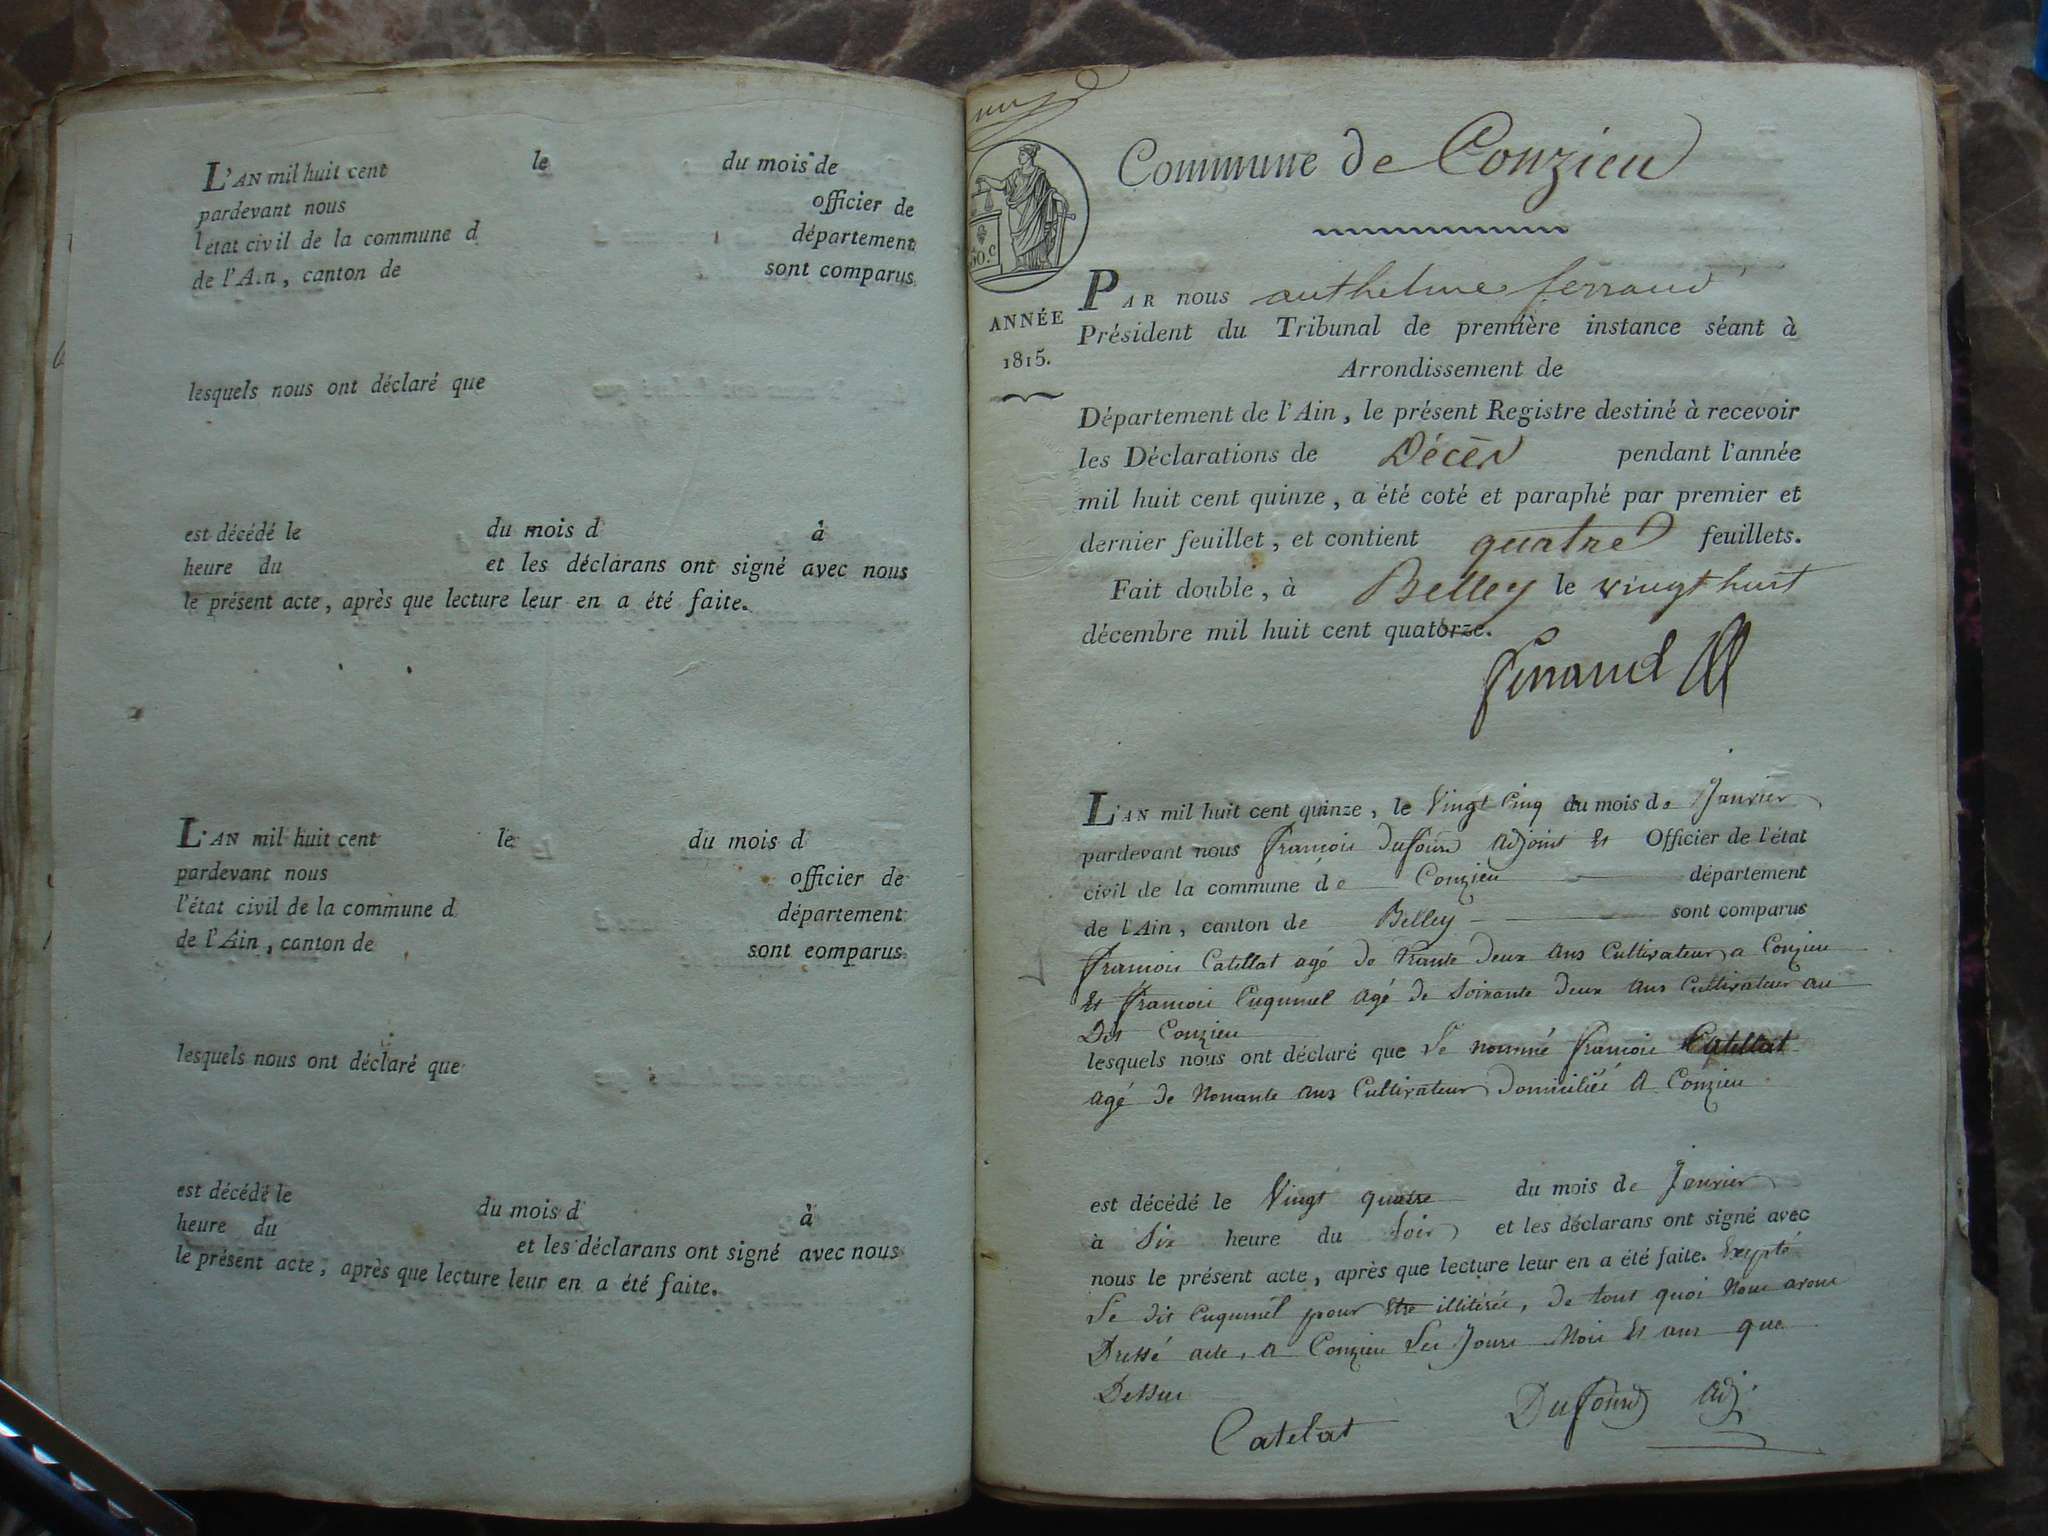 L'AN mil huit cent le du mois de
pardevant nous officier de
l'état civil de la commune d département
de l'Ain, canton de sont comparus
lesquels nous ont déclaré que
est décédé le du mois d à
heure du et les déclarans ont signé avec nous
le présent acte, après que lecture leur en a été faite.
L'AN mil huit cent le du mois d
pardevant nous officier de
l'état civil de la commune d département
de l'Ain, canton de sont comparus
lesquels nous ont déclaré que
est décédé le du mois d à
heure du et les déclarans ont signé avec nous
le présent acte, après que lecture leur en a été faite.
Commune de Conzieu
50.c
ANNÉE
1815.
PAR nous anthelme ferrand
Président du Tribunal de première instance séant à
Arrondissement de
Département de l'Ain, le présent Registre destiné à recevoir
les Déclarations de Décès pendant l'année
mil huit cent quinze, a été coté et paraphé par premier et
dernier feuillet, et contient quatre feuillets.
Fait double, à Belley le vingt huit
décembre mil huit cent quatorze.
ferrand
L'AN mil huit cent quinze, le Vingt Cinq du mois de Janvier
pardevant nous francois Dufour Adjoint Et Officier de l'état
civil de la commune de Conzieu département
de l'Ain, canton de Belley sont comparus
francois Catellat agé de Trante Deux Ans Cultivateur a Conzieu
Et francois Cuguinel Agé de Soixante Deux Ans Cultivateur au
Dit Conzieu
lesquels nous ont déclaré que Le nommé francois Catellat
agé de Nonante ans Cultivateur Domicilié A Conzieu
est décédé le Vingt quatre du mois de Janvier
à Six heure du Soir et les déclarans ont signé avec
nous le présent acte, après que lecture leur en a été faite. Exepté
Le dit Cuguinel pour Etre illitéré, de tout quoi Nous avons
Dressé acte, A Conzieu Les Jours Mois Et ans que
Dessus
Catelat Dufour Adj.